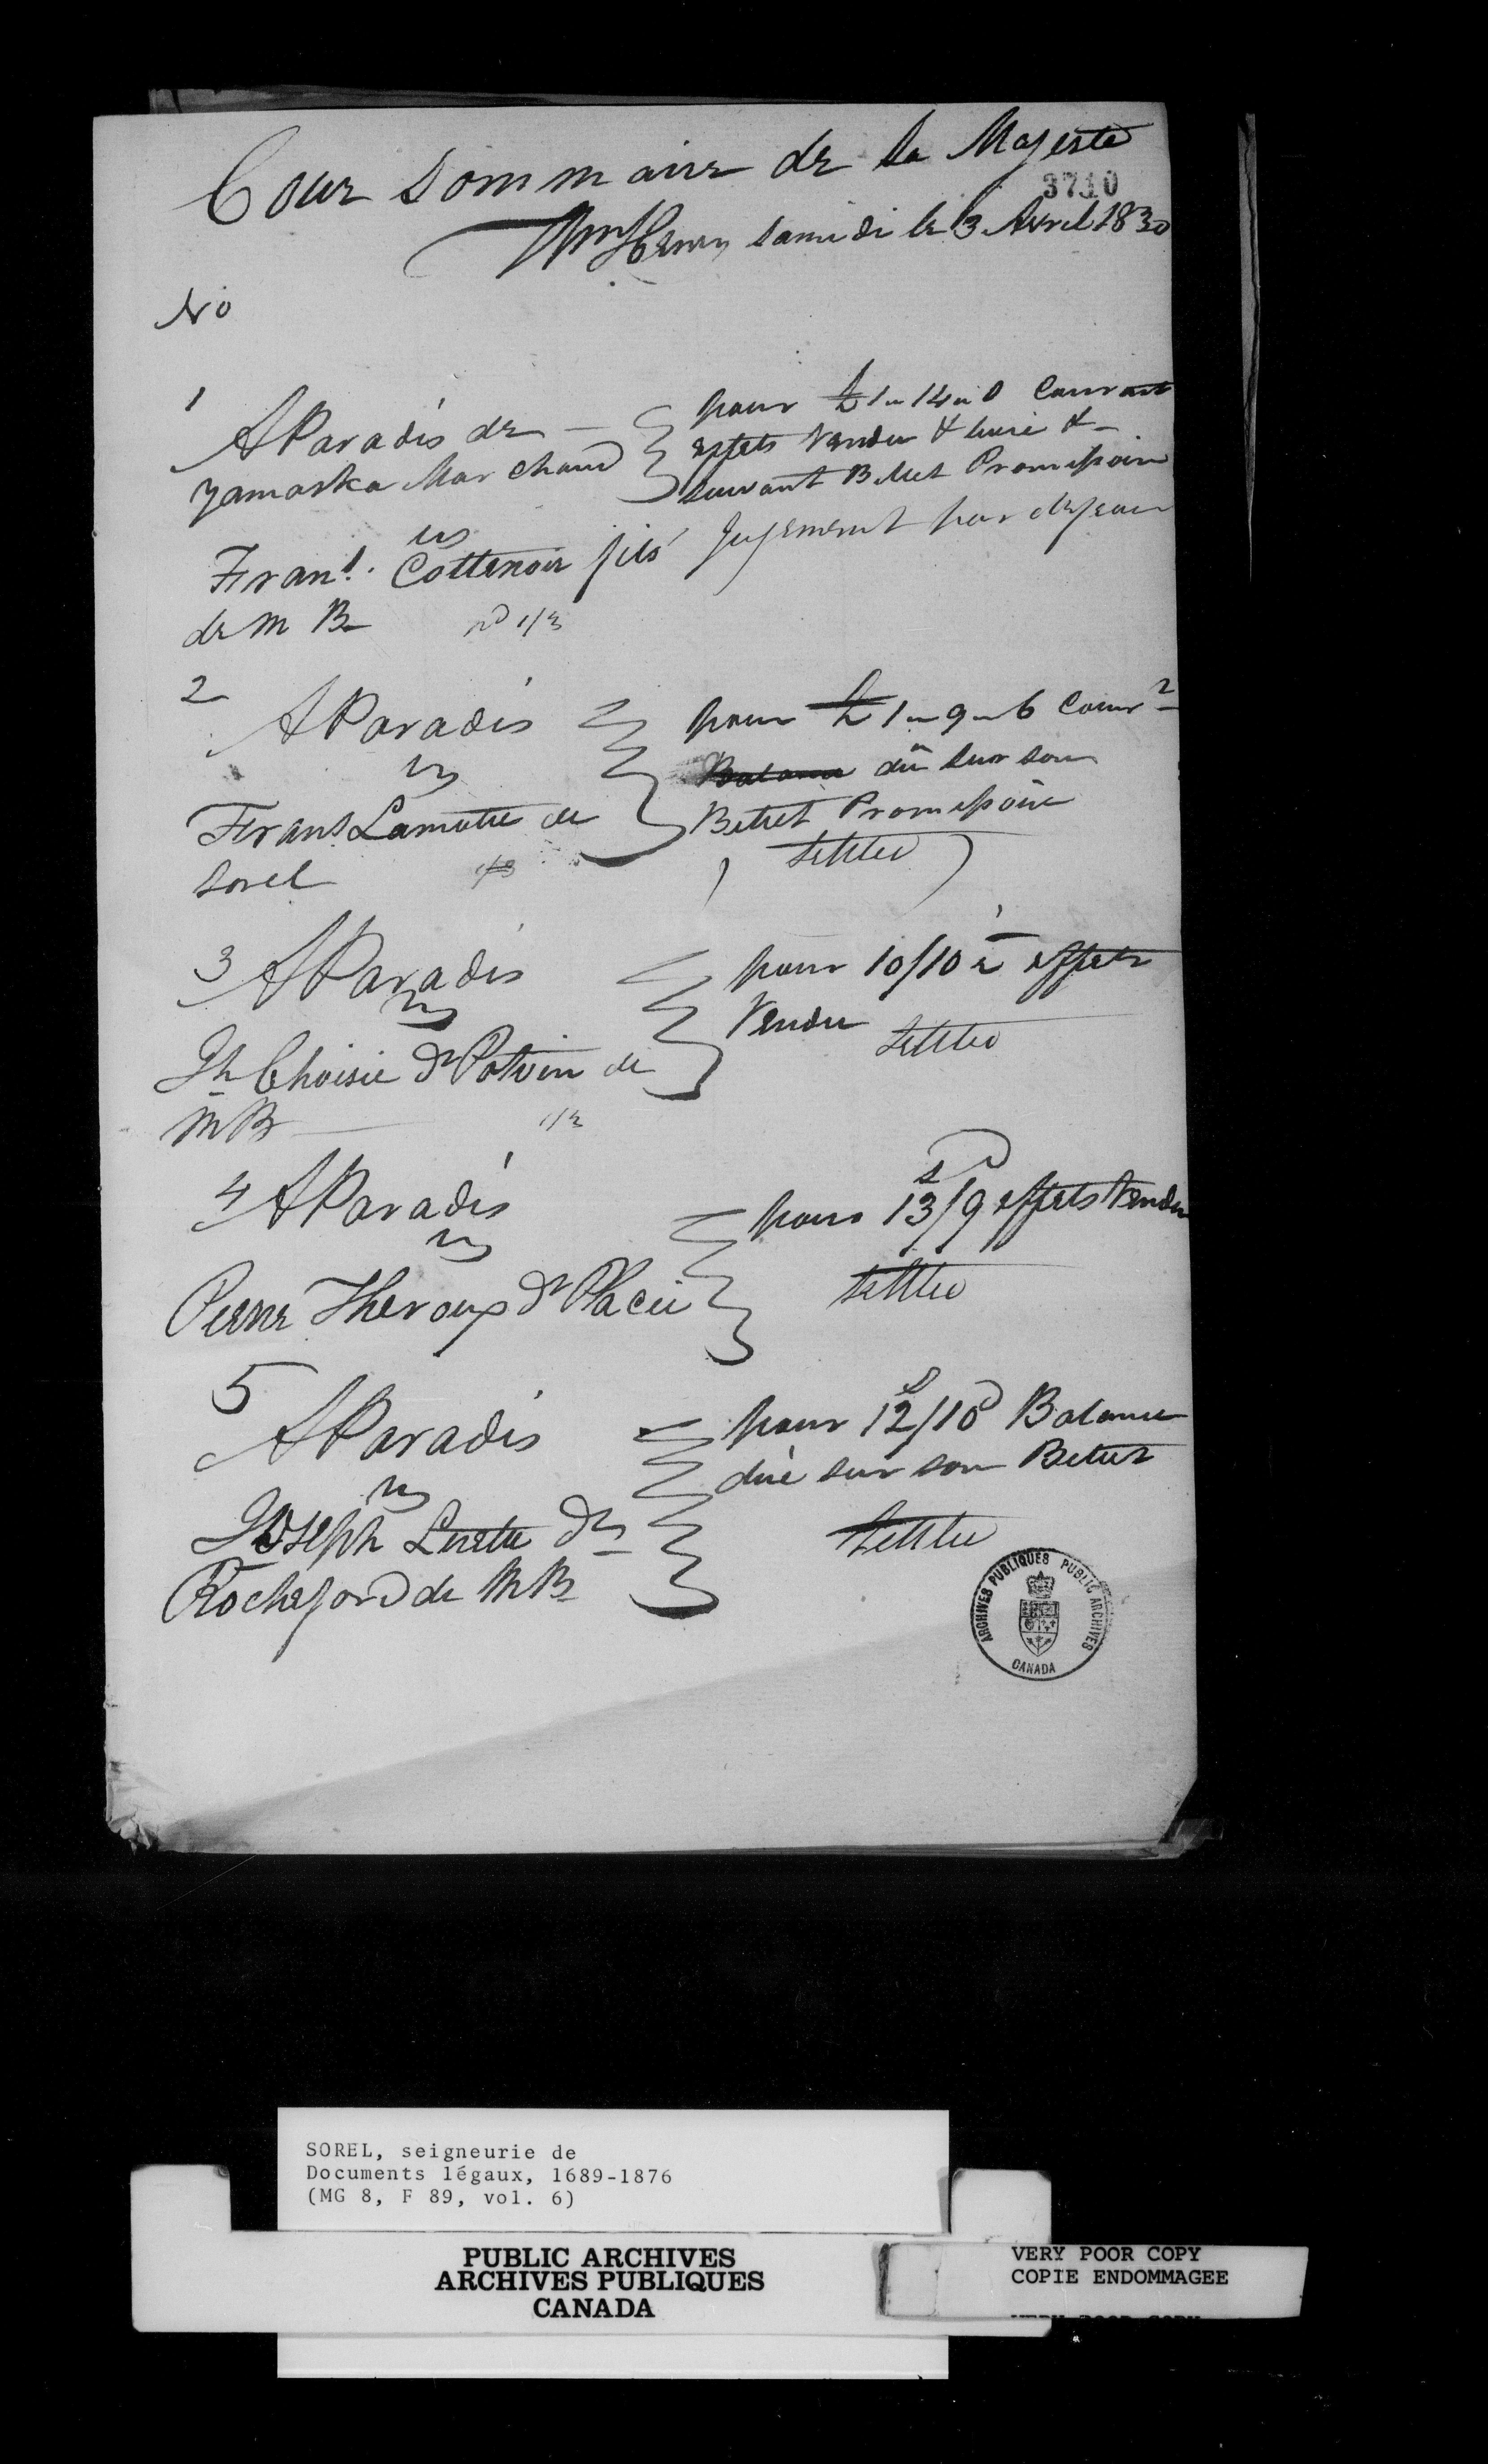 Cour Sommaire de Sa Majesté
3710
Wm Henry Samedi le 3 Avril 1830
No
1
A Paradis de
yamaska Marchand
vs
Frans. Cottenoir fils
de M B
pd 1/3
pour £ 1 " 14 " 0 Courant
effets vendu & livré &
suivant Billet Promissoire
Jugement par defaut
2
A Paradis
vs
Frans Lamotte de
Sorel
1/3
pour £ 1 " 9 " 6 Cour
Balance dû sur son
Billet Promissoire
settled
3 A Paradis
vs
Jh Choisie dt Potvin de
MB
1/3
pour 10/10 effets
vendu
settled
4 A Paradis
vs
Pierre Theroux dt Placie
pour 13/9 effets vendu
settled
5
A Paradis
vs
Joseph Lusette dt
Rocheford de MB
pour 12/10 Balance
due sur son Billet
settled
ARCHIVES PUBLIQUES PUBLIC ARCHIVES
CANADA
SOREL, seigneurie de
Documents légaux, 1689-1876
(MG 8, F 89, vol. 6)
PUBLIC ARCHIVES
ARCHIVES PUBLIQUES
CANADA
VERY POOR COPY
COPIE ENDOMMAGEE
VERY POOR COPY